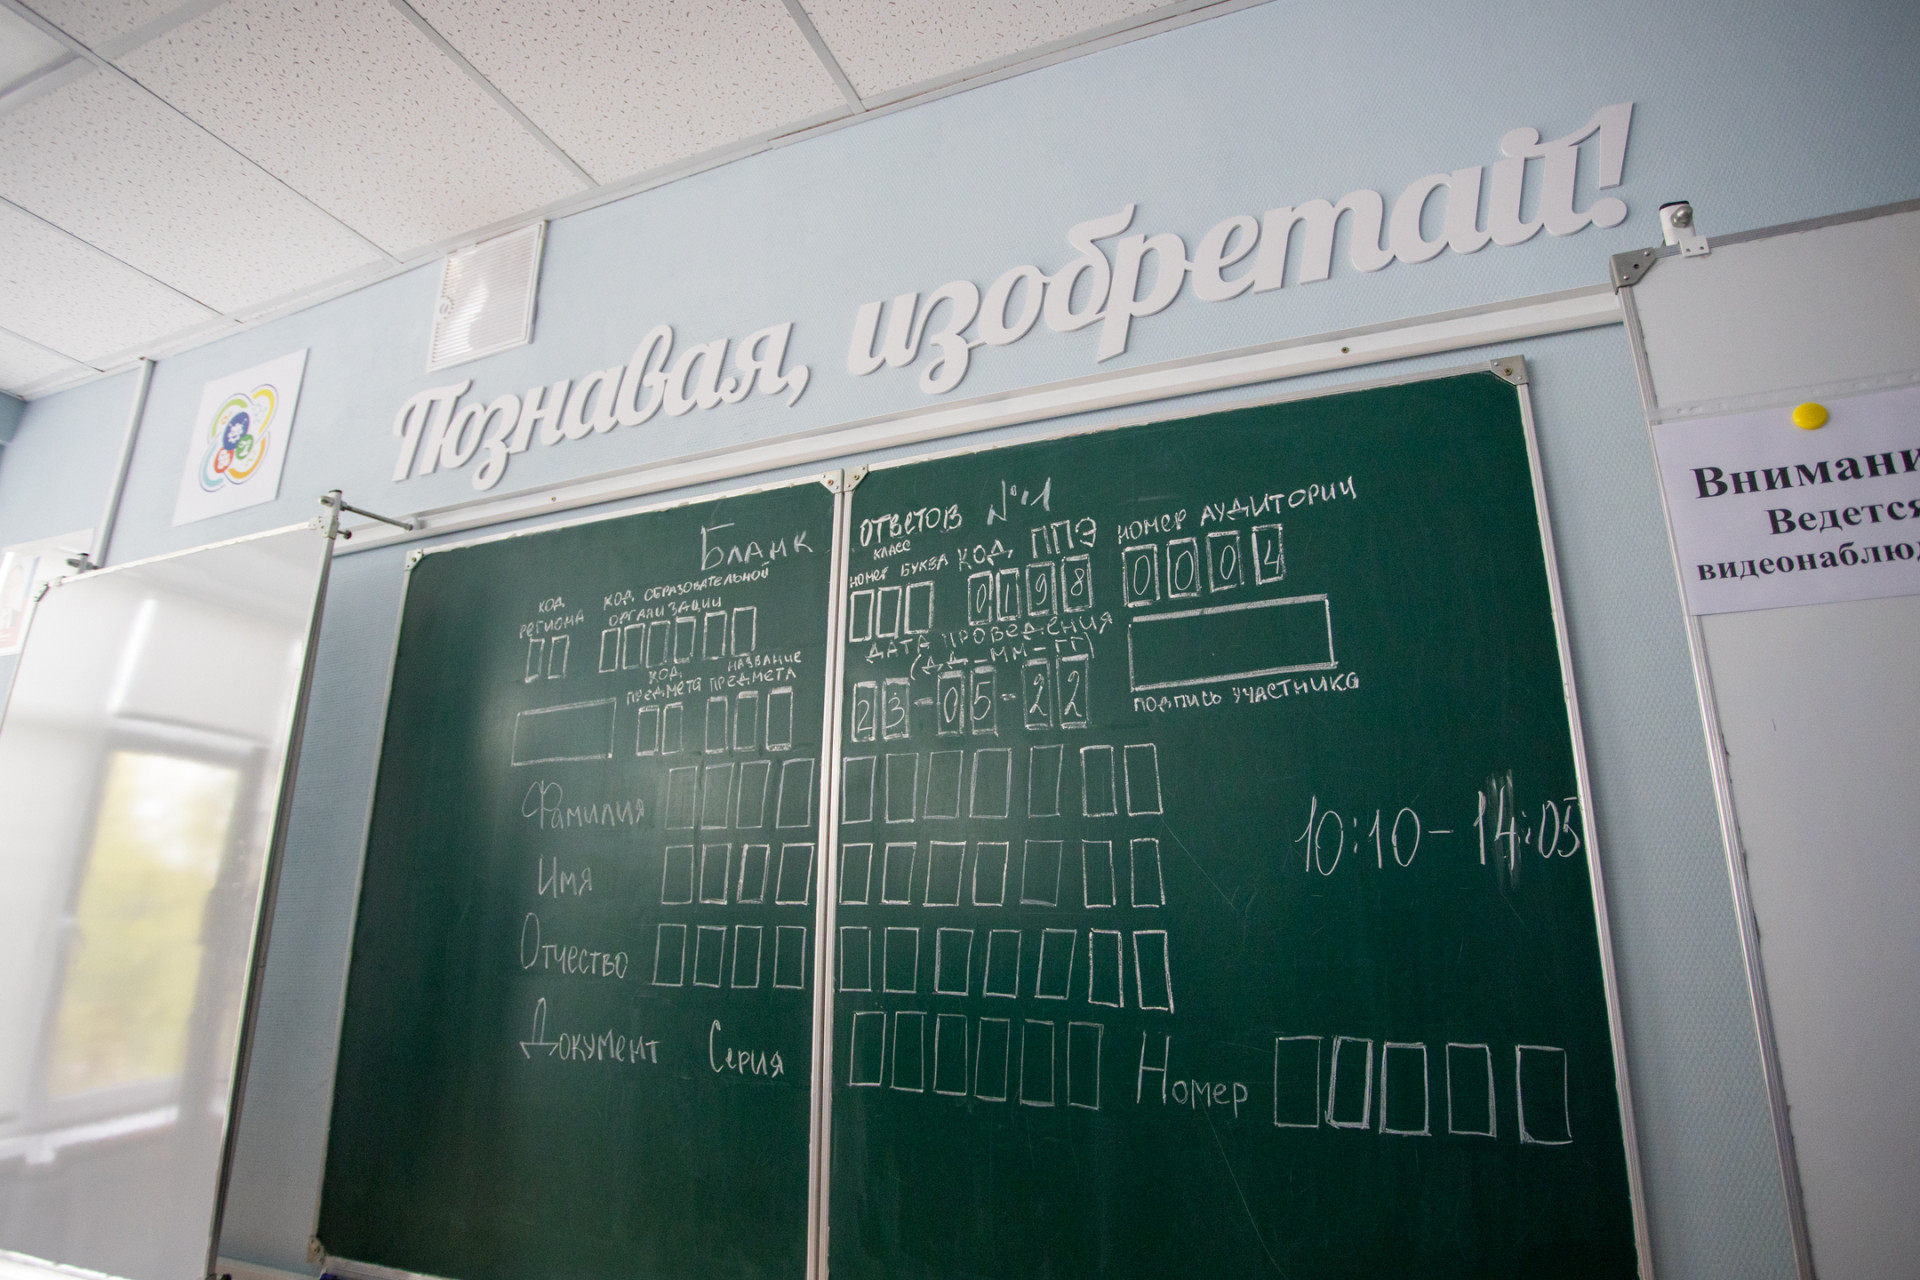 Познавая, изобретай!
Внимани
Ведется
видеонаблюд
Бланк ответов №1
код региона
код образовательной организации
класс
номер буква
код ППЭ
0198
номер аудитории
0004
код предмета
название предмета
дата проведения
(дд-мм-гг)
23-05-22
подпись участника
Фамилия
Имя
Отчество
Документ Серия Номер
10:10 - 14:05